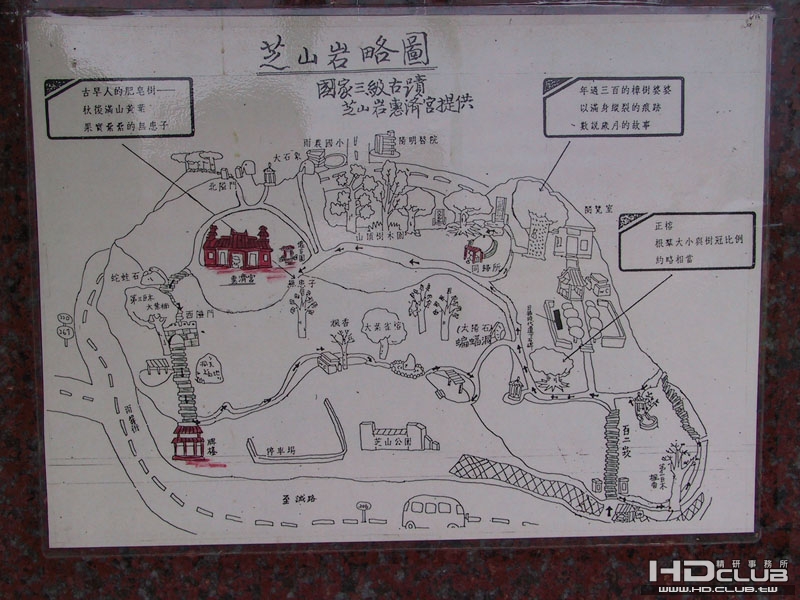 芝山岩略圖
國家三級古蹟
芝山岩惠濟宮提供
古早人的肥皂樹——
秋後滿山黃葉
果實纍纍的無患子
年過三百的樟樹婆婆
以滿身縱裂的痕跡
數說歲月的故事
正榕
根幹大小與樹冠比例
約略相當
雨農國小
陽明醫院
大石象
北隘門
閱覽室
山頂樹木園
惠濟宮
同歸所
無患子
蛇蛙石
西隘門
楓香
大葉雀榕
太陽石
蝙蝠洞
百二崁
牌樓
停車場
芝山公園
雨農路
至誠路
220
267
206
HDCLUB
精研事務所
www.HD.CLUB.TW